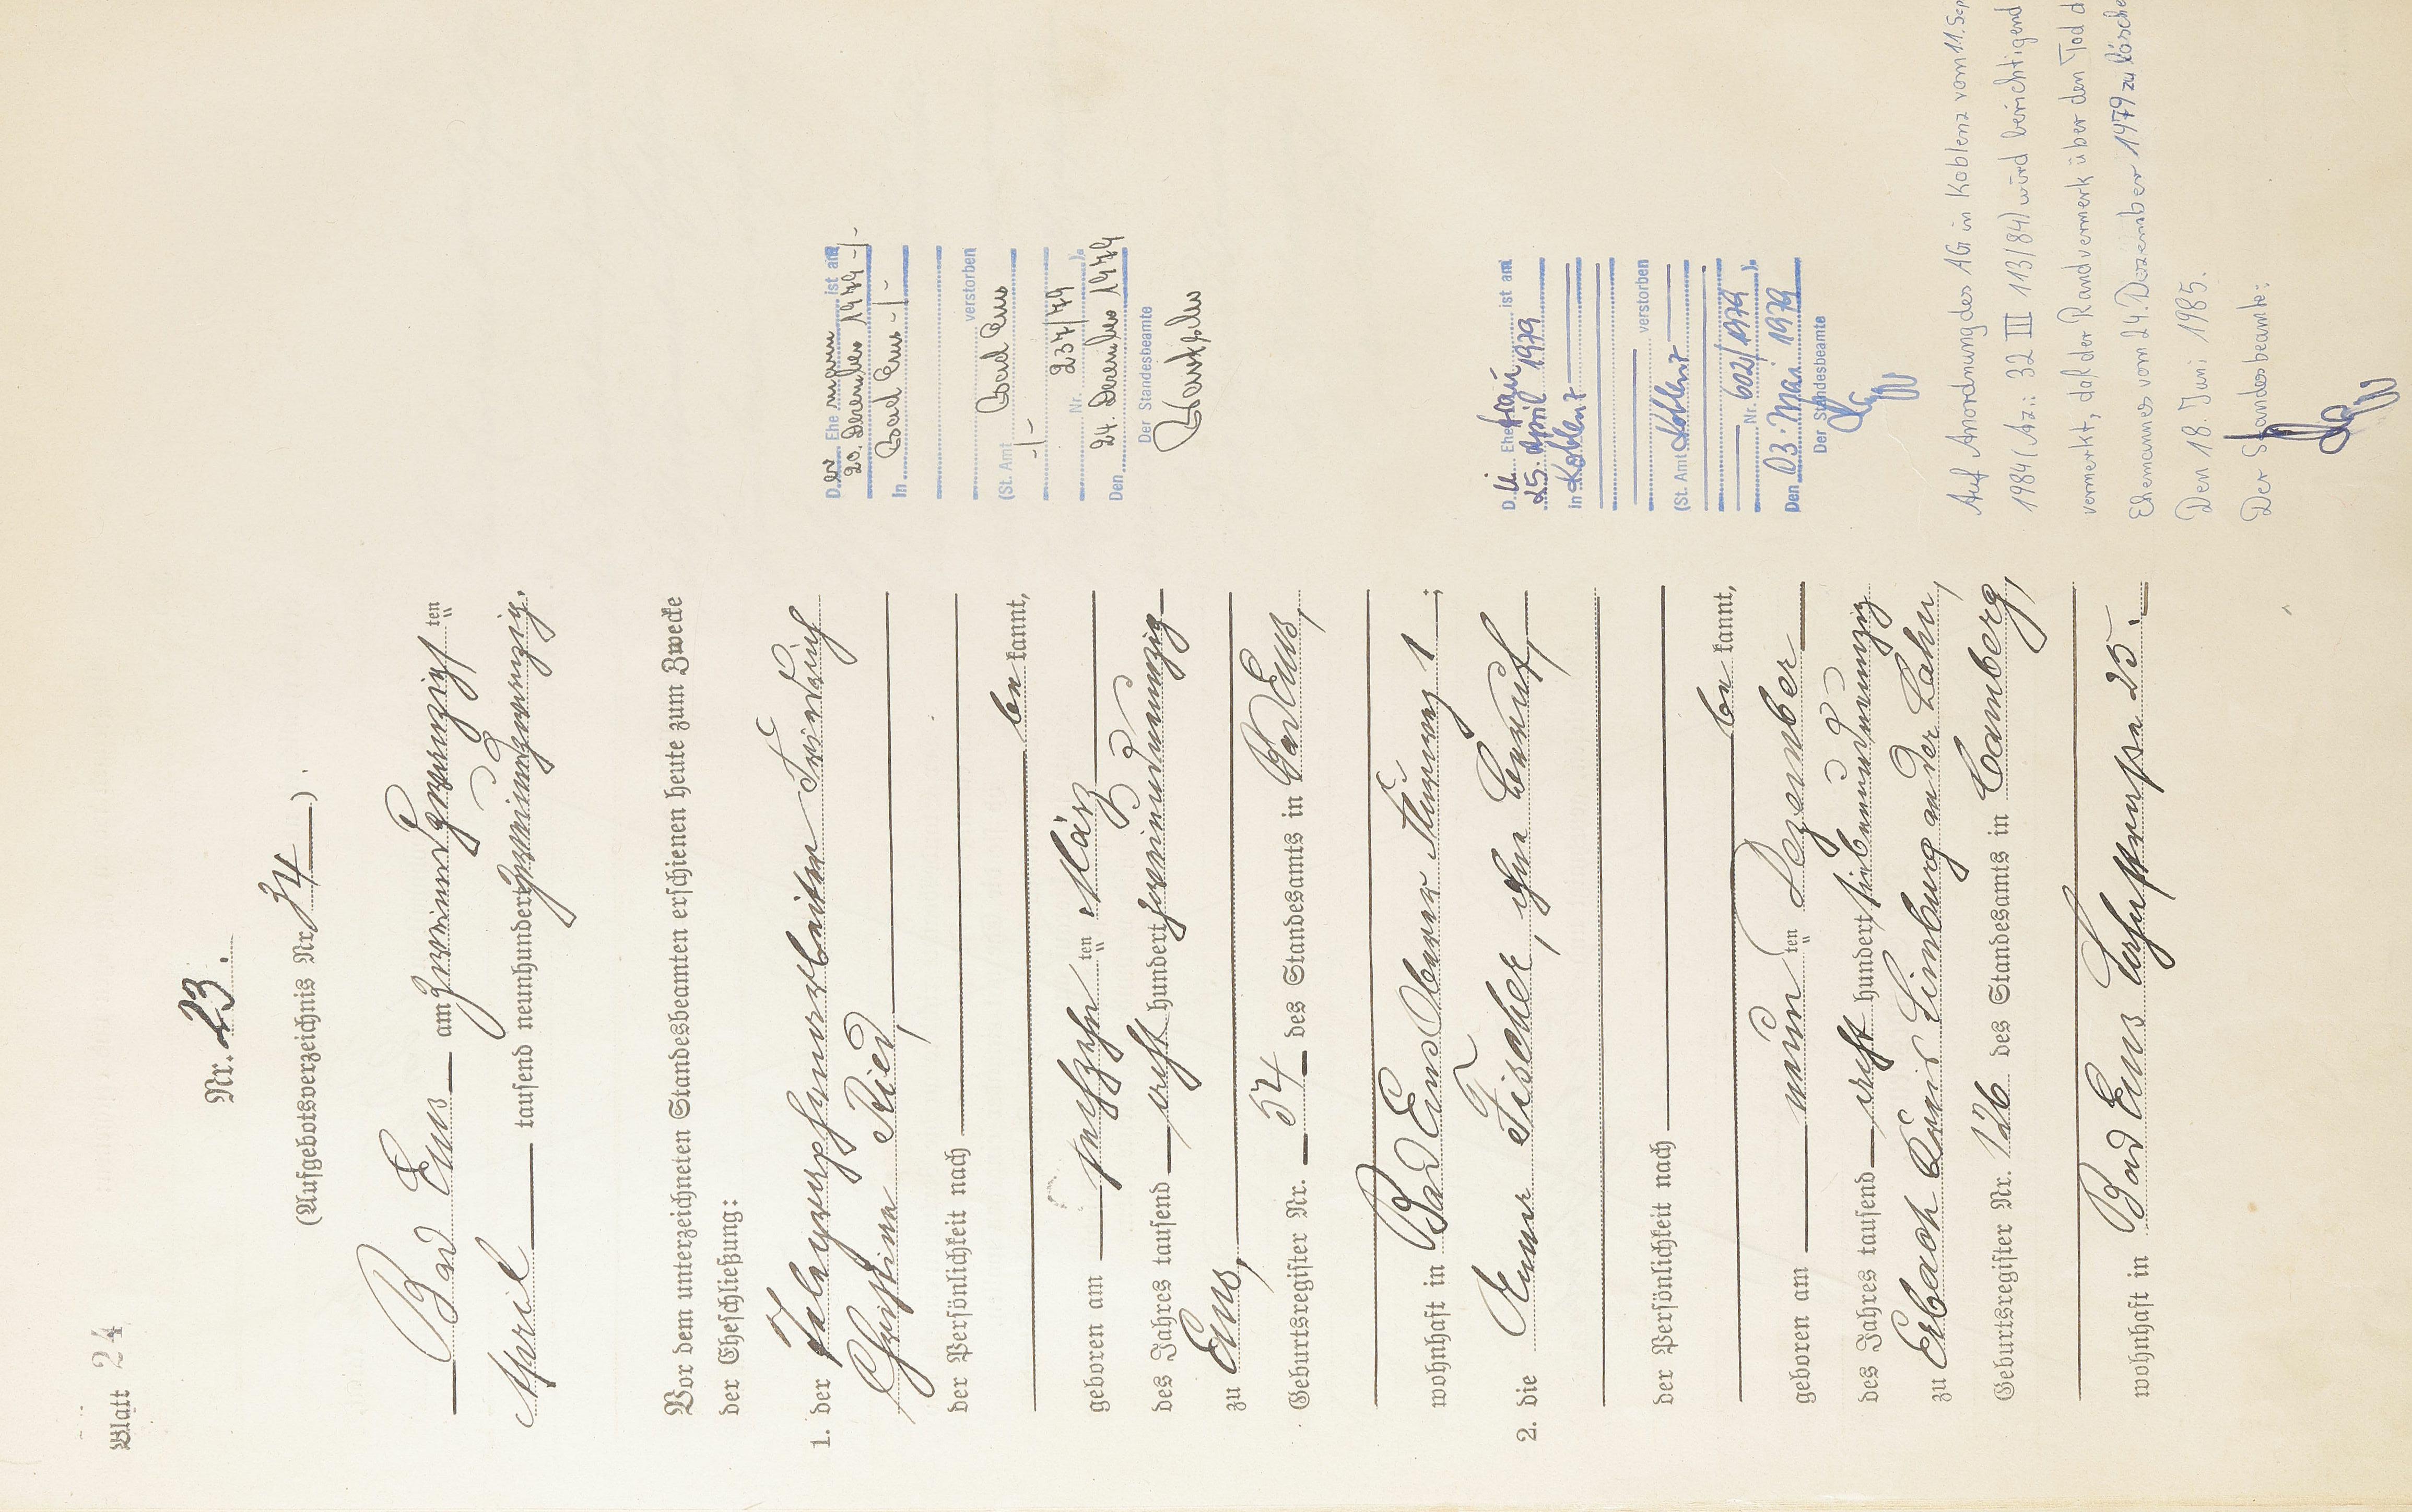 Blatt 24
Nr. 23.
(Aufgebotsverzeichnis Nr. 34).
Bad Ems am zweiundzwanzigsten
April tausend neunhundertzweiundzwanzig.
Vor dem unterzeichneten Standesbeamten erschienen heute zum Zwecke
der Eheschließung:
1. der Telegraphenarbeiter Friedrich
Christian Ried,
der Persönlichkeit nach
be kannt,
geboren am sechzehn ten März
des Jahres tausend acht hundert zweiundneunzig
zu Ems,
Geburtsregister Nr. 54 des Standesamts in Bad Ems,
wohnhaft in Bad Ems Oberer 1;
2. die Anna Fischer, ohne Beruf,
der Persönlichkeit nach
be kannt,
geboren am neun ten Dezember
des Jahres tausend acht hundert siebenundneunzig
zu Erbach Kreis Limburg an der Lahn,
Geburtsregister Nr. 126 des Standesamts in Camberg,
wohnhaft in Bad Ems 25.
Der Ehemann ist am
20. Dezember 1979 -/-
In Bad Ems -/-
verstorben
(St. Amt Bad Ems
-/- Nr. 237/79).
Den 24. Dezember 1979
Der Standesbeamte
Die Ehefrau ist am
25. April 1979
in Koblenz
verstorben
(St. Amt Koblenz
Nr. 602/1979).
Den 03. Mai 1979
Der Standesbeamte
Auf Anordnung des AG in Koblenz vom 11. Sep
1984 (Az.: 32 III 113/84) wird berichtigend
vermerkt, daß der Randvermerk über den Tod d
Ehemannes vom 24. Dezember 1979 zu lösche
Den 18. Juni 1985.
Der Standesbeamte: